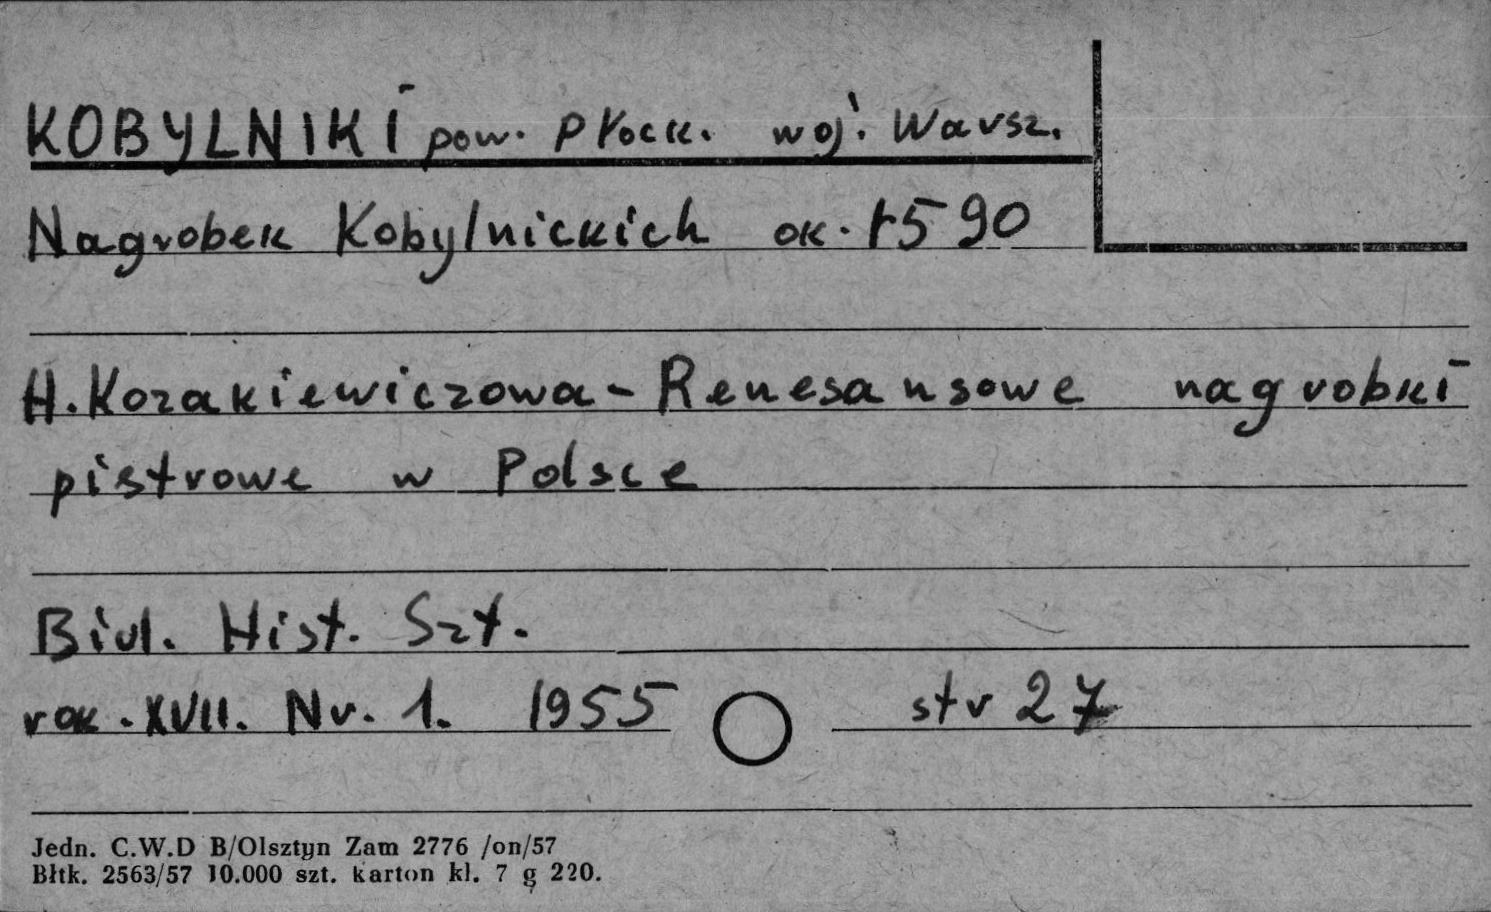 KOBYLNIKI pow. Płock. woj. Warsz.
Nagrobek Kobylnickich ok. 1590
H. Kozakiewiczowa - Renesansowe nagrobki
pistrowe w Polsce
Biul. Hist. Szt.
rok. XVII. Nr. 1. 1955 str 27
Jedn. C.W.D B/Olsztyn Zam 2776 /on/57
Błtk. 2563/57 10.000 szt. karton kl. 7 g 220.